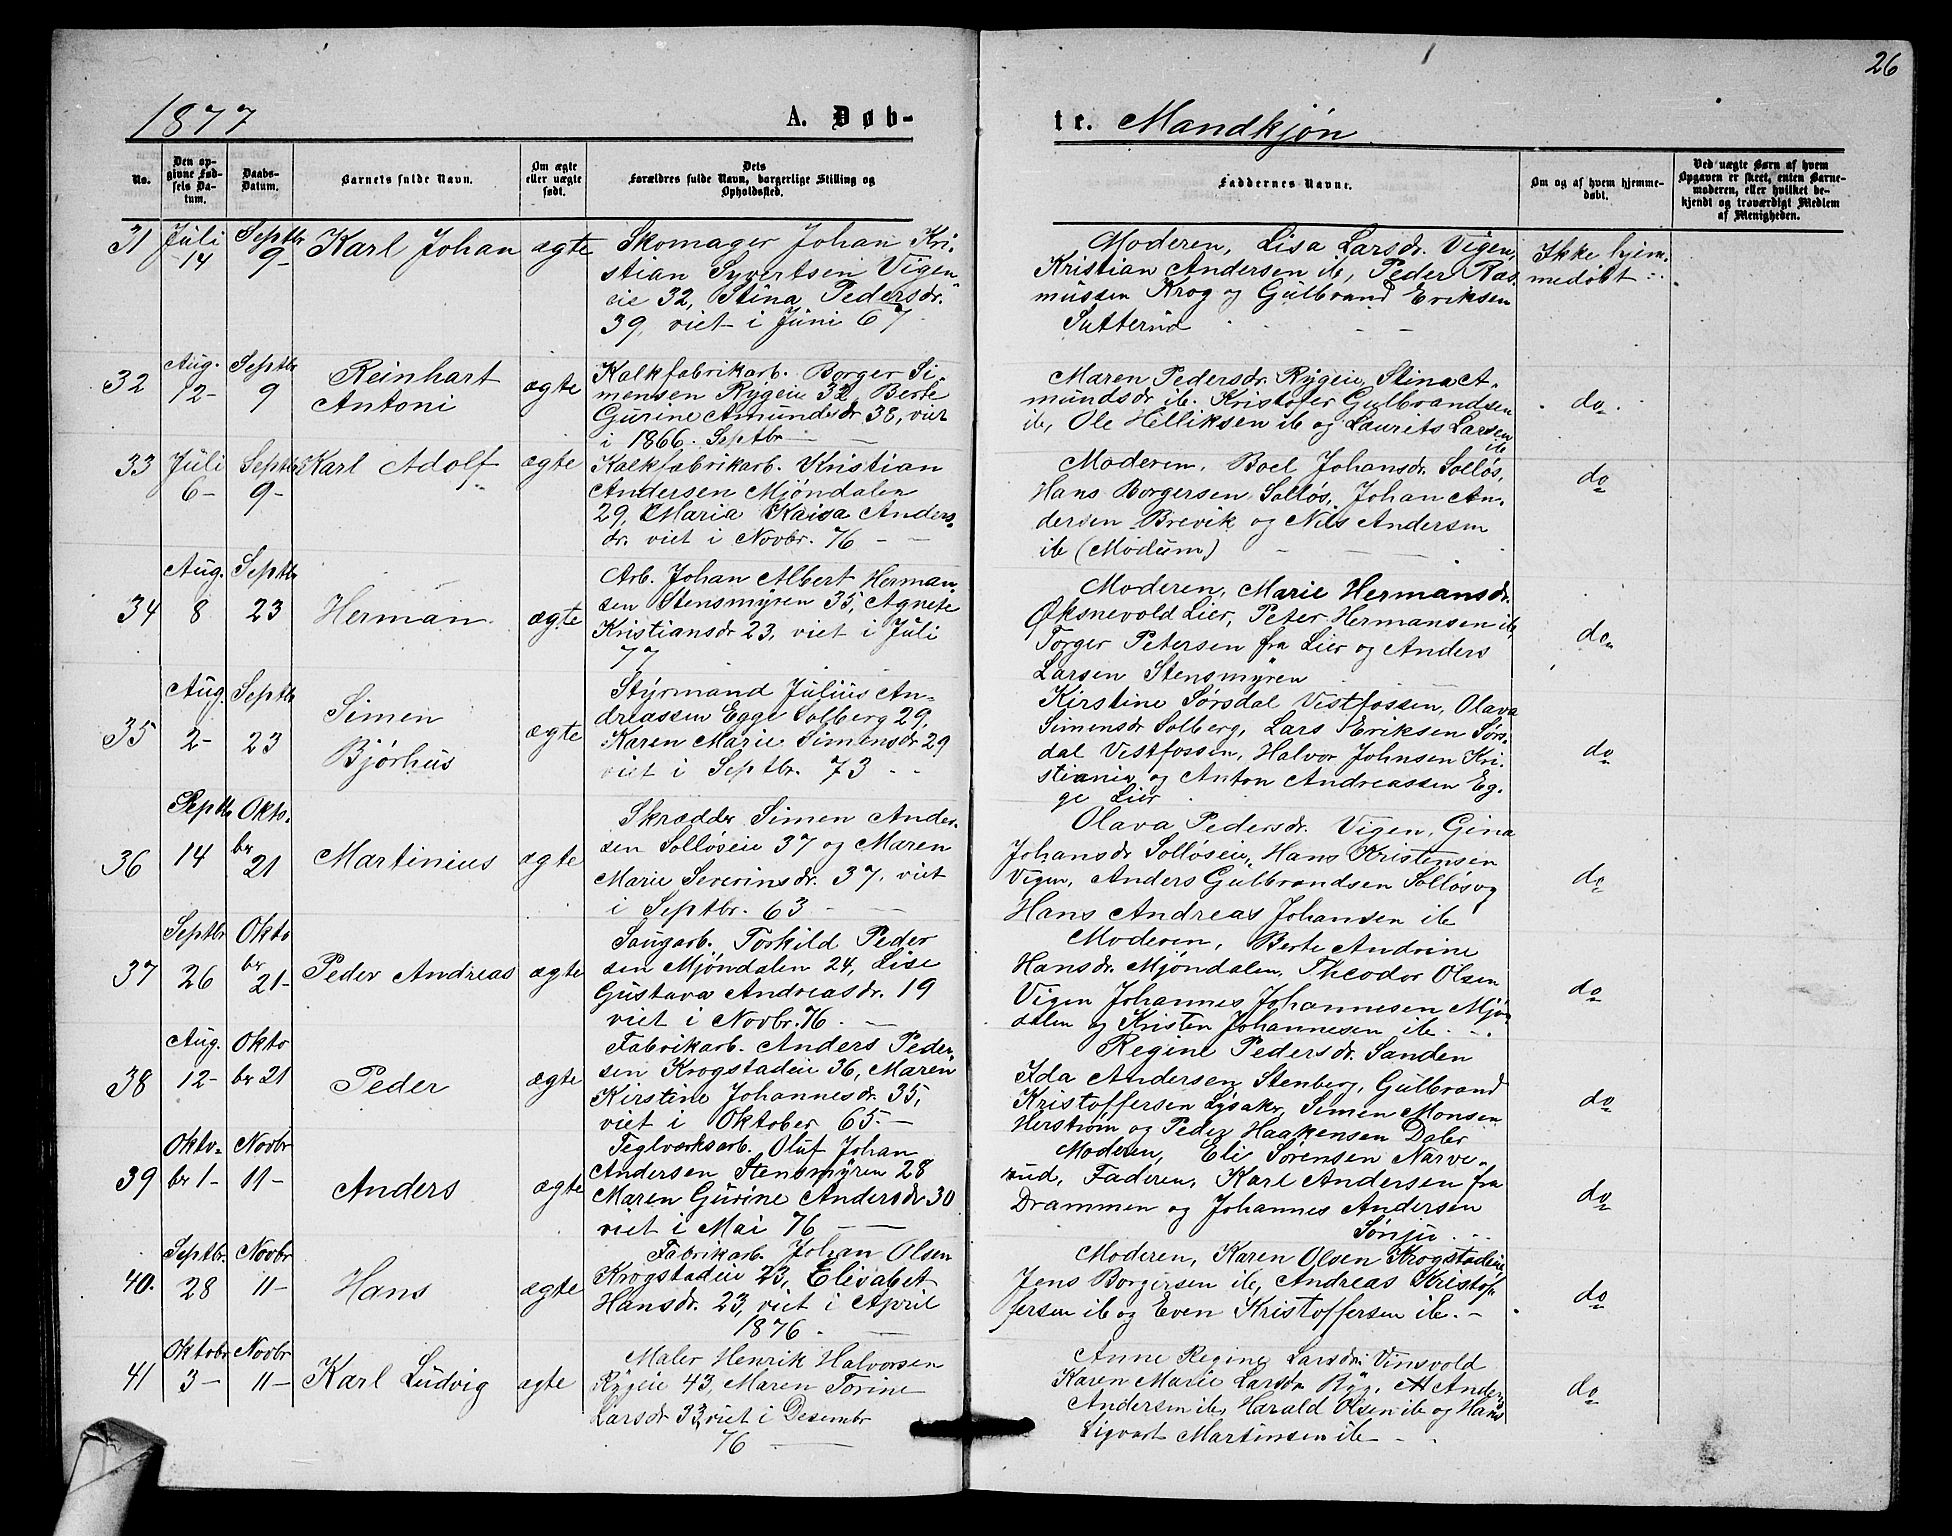 26
1877
A. Døb-
te. Mandkjön
No.
Den op-
givne Fød-
sels Da-
tum.
Daabs-
Datum.
Barnets fulde Navn.
Om ægte
eller uægte
født.
Dets
Forældres fulde Navn, borgerlige Stilling og
Opholdssted.
Faddernes Navne.
Om og af hvem hjemme-
døbt.
Ved uægte Børn af hvem
Opgaven er skeet, enten Barne-
moderen, eller hvilket be-
kjendt og troværdigt Medlem
af Menigheden.
31
Juli
14
Septbr
9-
Karl Johan
ægte
Skomager Johan Kri-
stian Syvertsen Vigen
eie 32, Stina Pedersdr.
39, viet i Juni 67
Moderen, Lisa Larsdr. Vigen,
Kristian Andersen ib, Peder Ras
mussen Krog og Gulbrand Eriksen
Sutterud
Ikke hjem
medøbt
32
Aug.
12-
Septbr
9
Reinhart
Antoni
ægte
Kalkfabrikarb. Borger Si-
mensen Rygeie 32, Berte
Gurine Amundsdr 38, viet
i 1866. Septbr
Maren Pedersdr. Rygeie, Stina A-
mundsdr ib. Kristofer Gulbrandsen
ib, Ole Helliksen ib og Laurits Larsen
ib
do
33
Juli
6-
Septbr
9-
Karl Adolf
ægte
Kalkfabrikarb. Kristian
Andersen Mjöndalen
29, Maria Kaisa Anders-
dr. viet i Novbr. 76
Moderen, Boel Johansdr. Solløs,
Hans Borgersen Solløs, Johan An-
dersen Brevik og Nils Andersen
ib (Modum)
do
34
Aug.
8
Septbr
23
Herman
ægte
Arb. Johan Albert Herman-
sen Stensmyren 35, Agnete
Kristiansdr 23, viet i Juli
77
Moderen, Marie Hermansdr.
Øksnevold Lier, Peter Hermansen ib,
Torger Petersen fra Lier og Anders
Larsen Stensmyren
do
35
Aug.
2-
Septbr
23
Simen
Bjørhus
ægte
Styrmand Julius An-
dreassen Egge Solberg 29,
Karen Marie Simensdr 29
viet i Septbr. 73
Kirstine Sørsdal Vestfossen, Olava
Simensdr Solberg, Lars Eriksen Sørs-
dal Vestfossen, Halvor Johnsen Kri-
stiania og Anton Andreassen Eg-
ge Lier
do
36
Septbr
14
Okto-
br
21
Martinius
ægte
Skrædder Simen Ander-
sen Solløseie 37 og Maren
Marie Severinsdr. 37, viet
i Septbr. 63
Olava Pedersdr. Vigen, Gina
Johansdr Solløseie, Hans Kristensen
Vigen, Anders Gulbrandsen Solløs og
Hans Andreas Johansen ib
do
37
Septbr
26
Okto
br
21-
Peder Andreas
ægte
Saugarb. Torkild Peder
sen Mjöndalen 24, Lise
Gustava Andreasdr. 19
viet i Novbr. 76.
Moderen, Berte Andrine
Hansdr. Mjöndalen, Theodor Olsen
Vigen Johannes Johannesen Mjøn
dalen og Kristen Johannesen ib
do
38
Aug.
12-
Okto
br 21
Peder
ægte
Fabrikarb. Anders Peder-
sen Krogstadeie 36, Maren
Kirstine Johannesdr. 35,
viet i Oktober 65.
Regine Pedersdr. Sanden
Ida Andersen Stenberg, Gulbrand
Kristoffersen Lysaker, Simen Monsen
Herstrøm og Peder Haakensen Daler
do
39
Okto-
br 1-
Novbr
11-
Anders
ægte
Teglværksarb. Oluf Johan
Andersen Stensmyren 28
Maren Gurine Andersdr 30
viet i Mai 76
Moderen, Eli Sørensen Narve-
rud, Faderen, Karl Andersen fra
Drammen og Johannes Andersen
Sønju
do
40.
Septbr.
28
Novbr
11-
Hans
ægte
Fabrikarb. Johan Olsen
Krogstadeie 23, Elisabet
Hansdr. 23, viet i April
1876.
Moderen, Karen Olsen Krogstadeie
Jens Borgersen ib, Andreas Kristof-
fersen ib og Even Kristoffersen ib.
do
41
Oktobr
3-
Novbr
11-
Karl Ludvig
ægte
Maler Henrik Halvorsen
Rygeie 43, Maren Torine
Larsdr 33, viet i Desembr
76
Anne Regine Larsdr Vinsvold
Karen Marie Larsdr Ryg, Anders
Andersen ib, Harald Olsen ib og Hans
Sigvart Martinsen ib
do